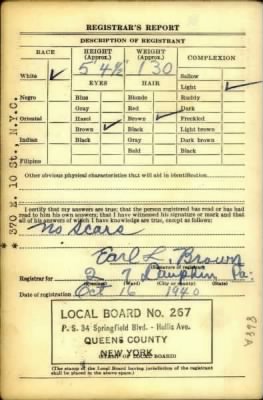 REGISTRAR'S REPORT
DESCRIPTION OF REGISTRANT
RACE
HEIGHT (Approx.)
WEIGHT (Approx.)
COMPLEXION
5' 4½
130
White ✓
EYES
HAIR
Sallow
Light ✓
Negro
Blue
Blonde
Ruddy
Gray
Red
Dark
Oriental
Hazel
Brown ✓
Freckled
Brown ✓
Black
Light brown
Indian
Black
Gray
Dark brown
Bald
Black
Filipino
Other obvious physical characteristics that will aid in identification
I certify that my answers are true; that the person registered has read or has had read to him his own answers; that I have witnessed his signature or mark and that all of his answers of which I have knowledge are true, except as follows:
No Scars
Earl L. Brown
(Signature of registrar)
Registrar for 2 7 Dauphin Pa.
(Ward) (City or county) (State)
Date of registration Oct 16 1940
LOCAL BOARD No. 267
P.S. 34 Springfield Blvd. - Hollis Ave.
QUEENS COUNTY
NEW YORK
(STAMP OF LOCAL BOARD)
(The stamp of the Local Board having jurisdiction of the registrant shall be placed in the above space.)
* 370 E. 10 St., N.Y.C.